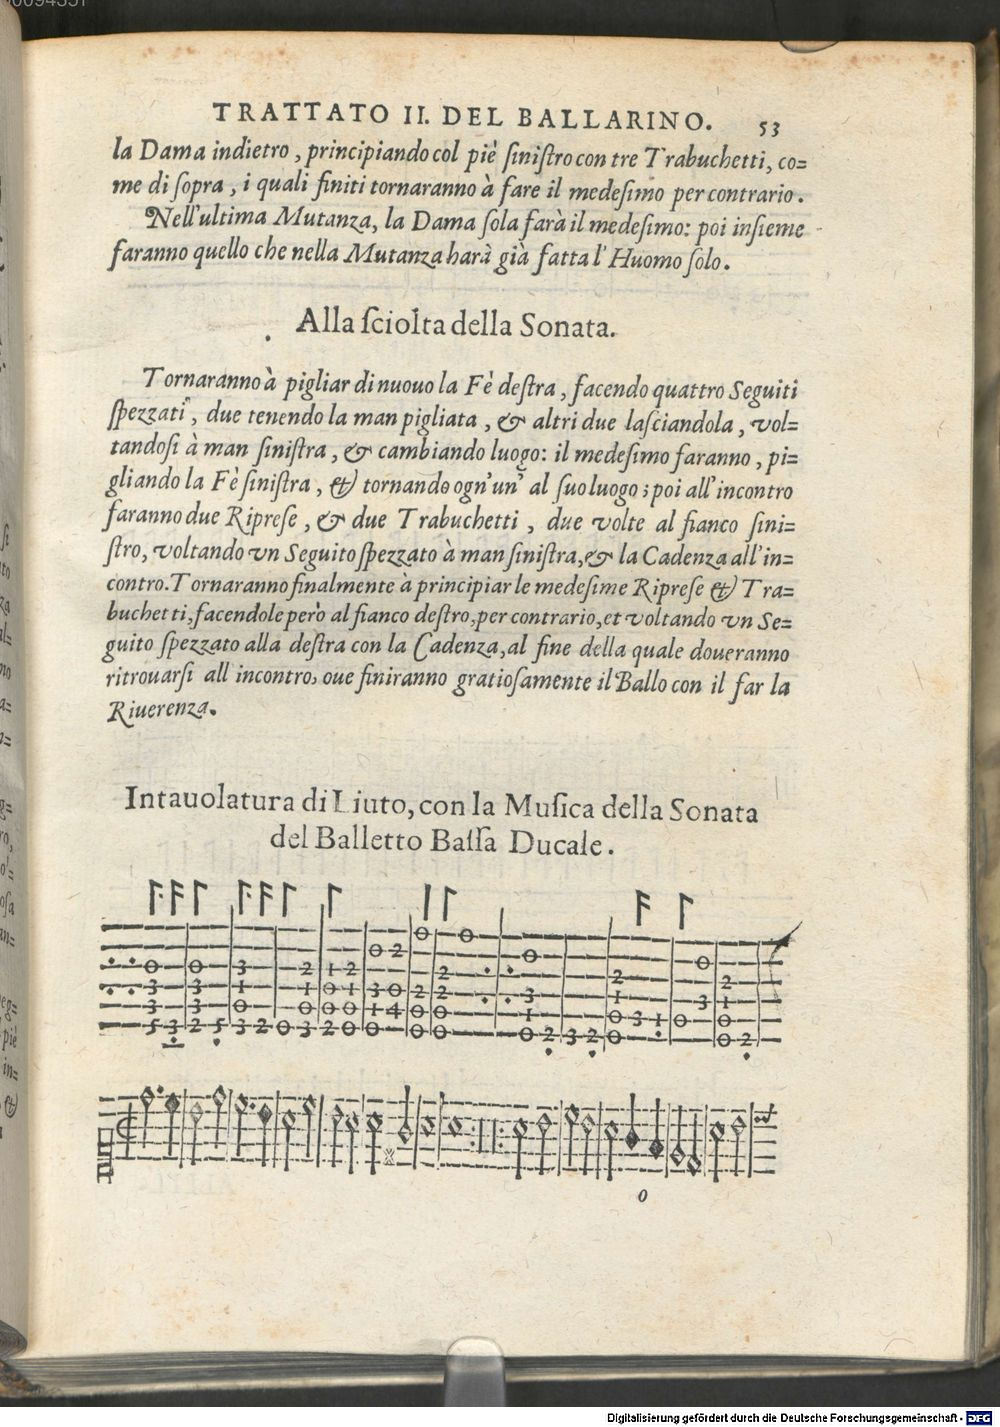 TRATTATO II. DEL BALLARINO. 53
la Dama indietro, principiando col piè ſiniſtro con tre Trabuchetti, co=
me di ſopra, i quali finiti tornaranno à fare il medeſimo per contrario.
Nell'ultima Mutanza, la Dama ſola farà il medeſimo: poi inſieme
faranno quello che nella Mutanza harà già fatta l'Huomo ſolo.
Alla ſciolta della Sonata.
Tornaranno à pigliar di nuouo la Fè deſtra, facendo quattro Seguiti
ſpezzati, due tenendo la man pigliata, & altri due laſciandola, vol=
tandoſi à man ſiniſtra, & cambiando luogo: il medeſimo faranno, pi=
gliando la Fè ſiniſtra, & tornando ogn'un' al ſuo luogo; poi all'incontro
faranno due Ripreſe, & due Trabuchetti, due volte al fianco ſini=
ſtro, voltando vn Seguito ſpezzato à man ſiniſtra, & la Cadenza all'in=
contro. Tornaranno finalmente à principiar le medeſime Ripreſe & Tra=
buchetti, facendole però al fianco deſtro, per contrario, et voltando vn Se=
guito ſpezzato alla deſtra con la Cadenza, al fine della quale doueranno
ritrouarſi all incontro, oue finiranno gratioſamente il Ballo con il far la
Riuerenza.
Intauolatura di Liuto, con la Muſica della Sonata
del Balletto Baſſa Ducale.
Digitalisierung gefördert durch die Deutsche Forschungsgemeinschaft - DFG